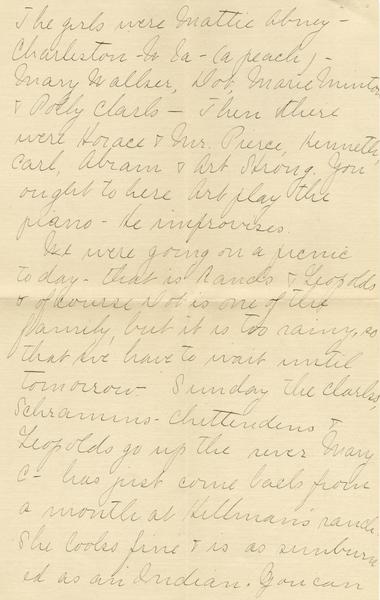 The girls were Mattie Abney -
Charleston - W Va - (a peach) -
Mary Walker, Dot, Marie Minton
& Polly Clark - Then there
were Horace & Mr. Pierce, Kenneth,
Carl, Abram & Art Strong. You
ought to here Art play the
piano - He improvises.
We were going on a picnic
today - that is Rands & Leopolds
& of course Dot is one of the
family, but it is too rainy, so
that we have to wait until
tomorrow - Sunday the Clarks,
Schramms - Chittendens &
Leopolds go up the river Mary
C - has just come back from
a month at Hillman's ranch.
She looks fine & is as sunburn
ed as an Indian. You can